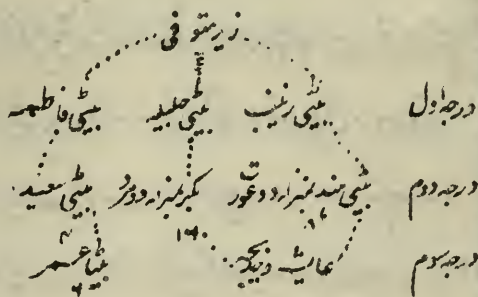 زید متوفی
درجہ اول بیٹی زینب بیٹی جلیلہ بیٹی فاطمہ
درجہ دوم بیٹی ہند بمنزلہ دو عورت بکر بمنزلہ دو مرد بیٹی سعیدہ
درجہ سوم عائشہ و زینب بیٹا عمر